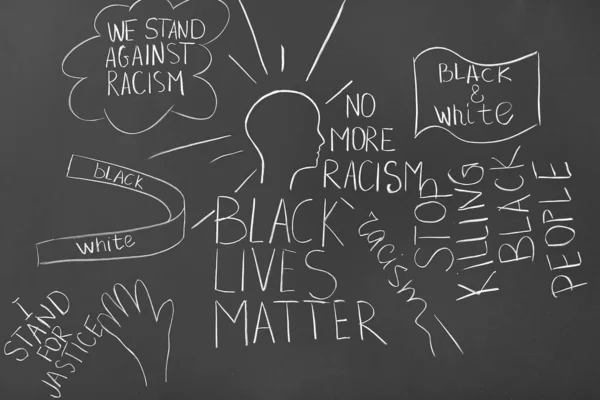 WE STAND
AGAINST
RACISM
NO
MORE
RACISM
BLACK
&
white
black
white
BLACK
LIVES
MATTER
racism
STOP
KILLING
BLACK
PEOPLE
I
STAND
FOR
JASTICE